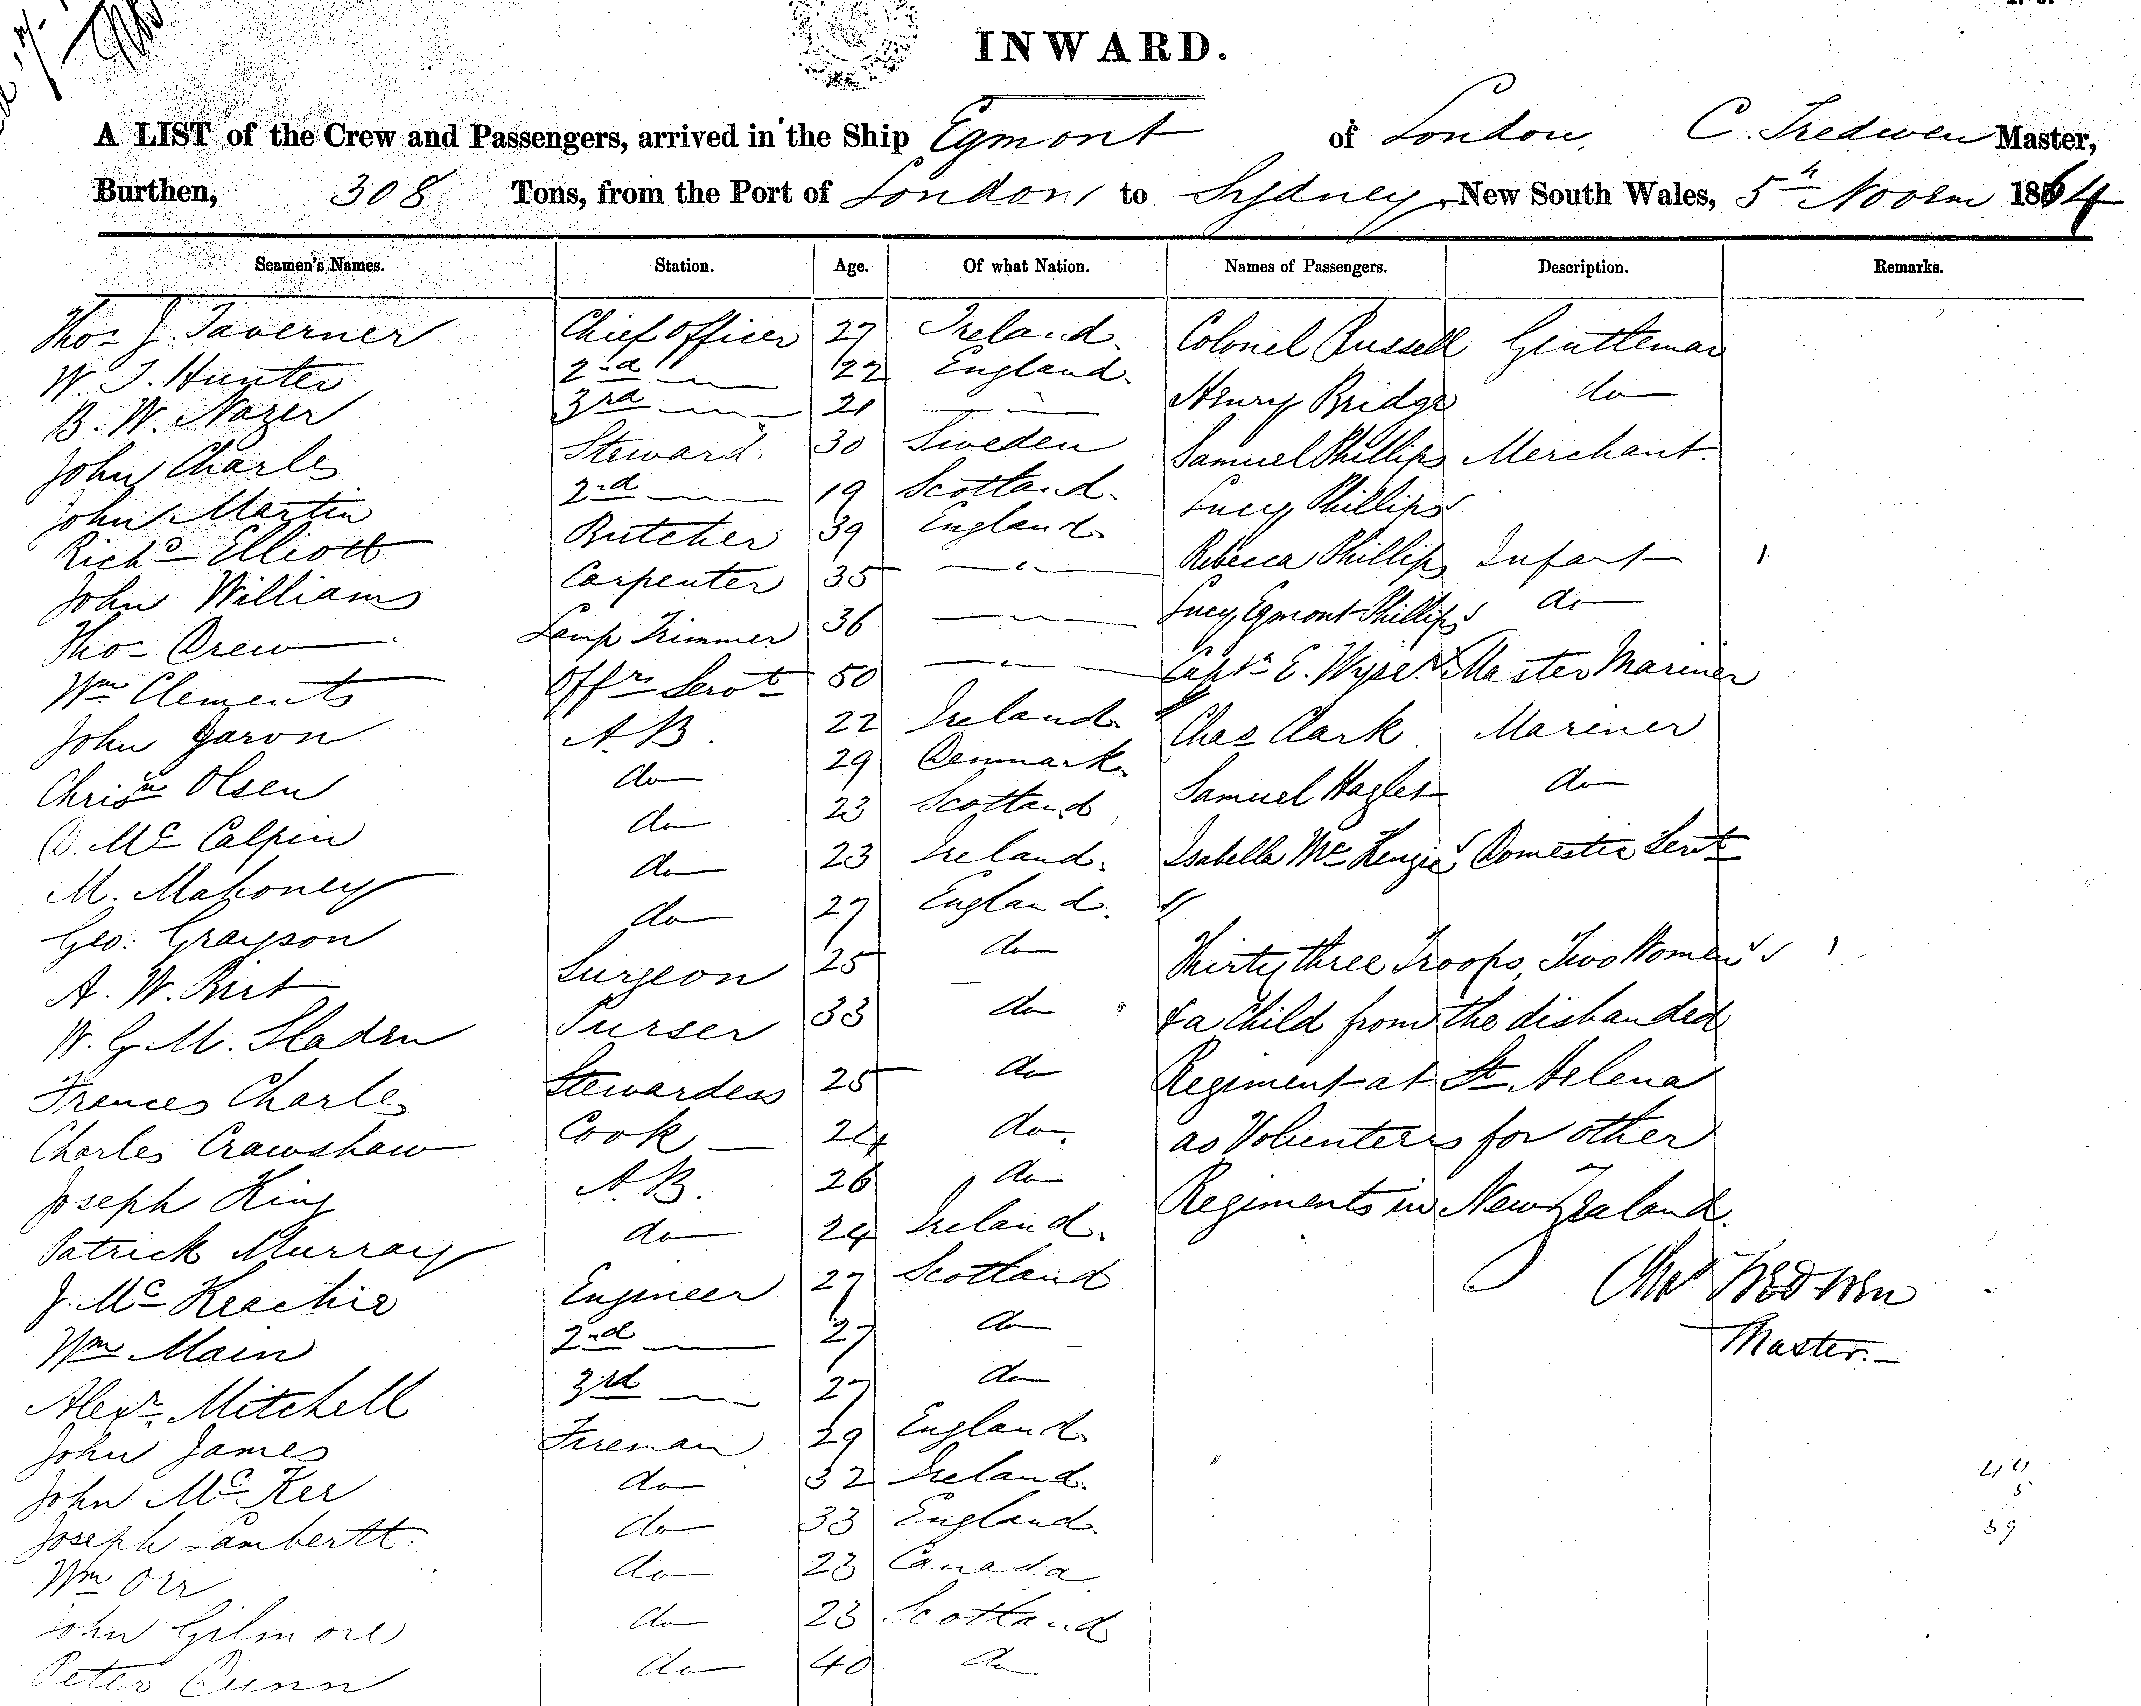 INWARD.
A LIST of the Crew and Passengers, arrived in the Ship Egmont of London, C. Tredwen Master,
Burthen, 308 Tons, from the Port of London to Sydney, New South Wales, 5th Novem 1864
Seamen's Names. Station. Age. Of what Nation. Names of Passengers. Description. Remarks.
Thos J. Taverner Chief Officer 27 Ireland. Colonel Russell Gentleman
W. J. Hunter 2nd " 22 England. Henry Bridge do
B. W. Nazer 3rd 21 " Samuel Phillips Merchant.
John Charles Steward. 30 Sweden Lucy Phillips
John Martin 2nd 19 Scotland. Rebecca Phillips Infant
Richd Elliott Butcher 39 England. Lucy Egmont Phillips do
John Williams Carpenter 35 " Captn E. Wyse Master Mariner
Thos Drew Lamp Trimmer 36 " Chas Clark Mariner
Wm Clements Offrs Servt 50 " Samuel Hagles do
John Garon A.B. 22 Ireland Isabella McKenzie Domestic Servt
Chrisn Olsen do 29 Denmark.
D. McCalpin do 23 Scotland
M. Mahoney do 23 Ireland.
Geo. Grayson do 27 England.
A. W. Birt Surgeon 25 do Thirty three Troops, Two Women
W. G. M. Sladen Purser 33 do & a Child from the disbanded
Frances Charles Stewardess 25 do Regiment at St Helena
Charles Crawshaw Cook 24 do. as Volunteers for other
Joseph King A.B. 26 do Regiments in New Zealand.
Patrick Murray do 24 Ireland.
J. McKeachie Engineer 27 Scotland Chas Tredwen
Wm Main 2nd 27 do Master.
Alexr Mitchell 3rd 27 do
John James Fireman 29 England.
John McKer do 32 Ireland. 44
Joseph Lambertt. do 33 England. 5
Wm Orr do 23 Canada. 39
John Gilmore do 23 Scotland
Peter Dunn do 40 do